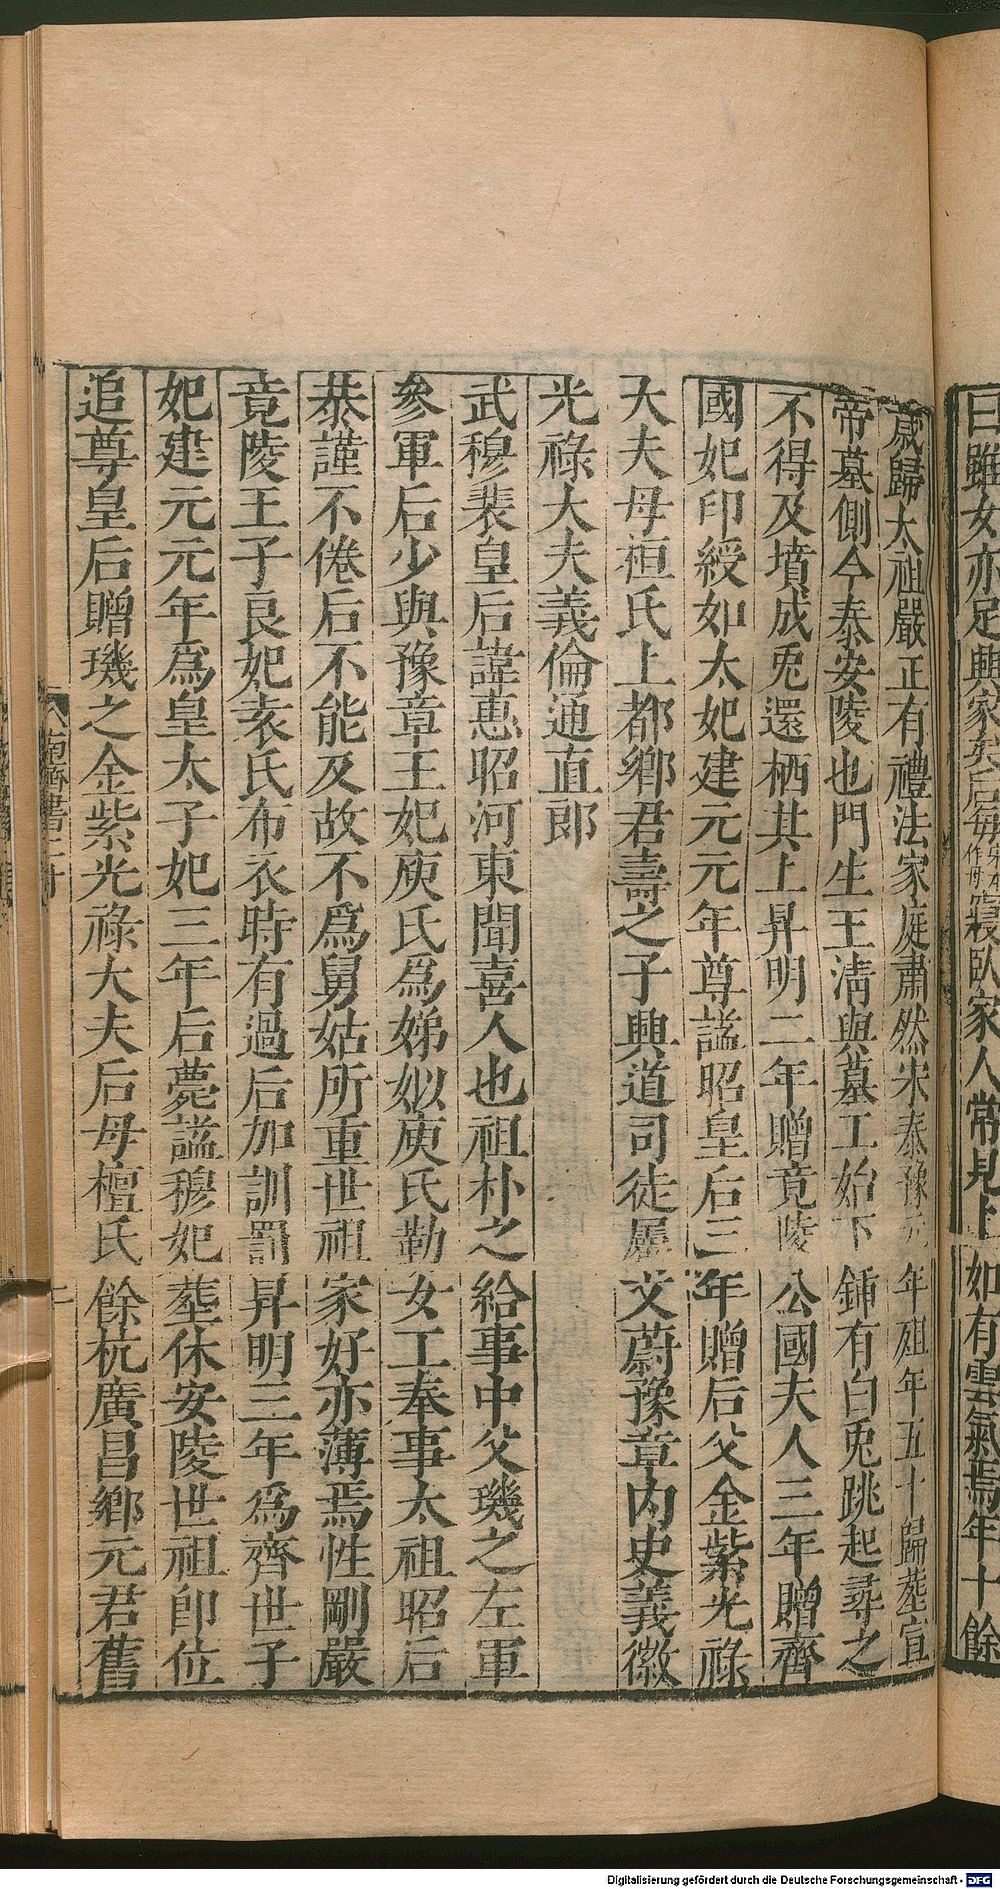 曰雖女亦足興家矣后每寢臥家人常見上如有雲氣焉年十餘
歲歸太祖嚴正有禮法家庭肅然宋泰豫元年殂年五十歸葬宣
帝墓側今泰安陵也門生王清與墓工始下鍤有白兎跳起尋之
不得及墳成兎還栖其上昇明二年贈竟陵公國夫人三年贈齊
國妃印綬如太妃建元元年尊謚昭皇后三年贈后父金紫光祿
大夫母桓氏上都鄉君壽之子興道司徒屬文蔚豫章內史義徽
光祿大夫義倫通直郎
武穆裴皇后諱惠昭河東聞喜人也祖朴之給事中父璣之左軍
參軍后少與豫章王妃庾氏為娣姒庾氏勤女工奉事太祖昭后
恭謹不倦后不能及故不為舅姑所重世祖家好亦薄焉性剛嚴
竟陵王子良妃袁氏布衣時有過后加訓罰昇明三年為齊世子
妃建元元年為皇太子妃三年后薨謚穆妃葬休安陵世祖即位
追尊皇后贈璣之金紫光祿大夫后母檀氏餘杭廣昌鄉元君舊
Digitalisierung gefördert durch die Deutsche Forschungsgemeinschaft - DFG